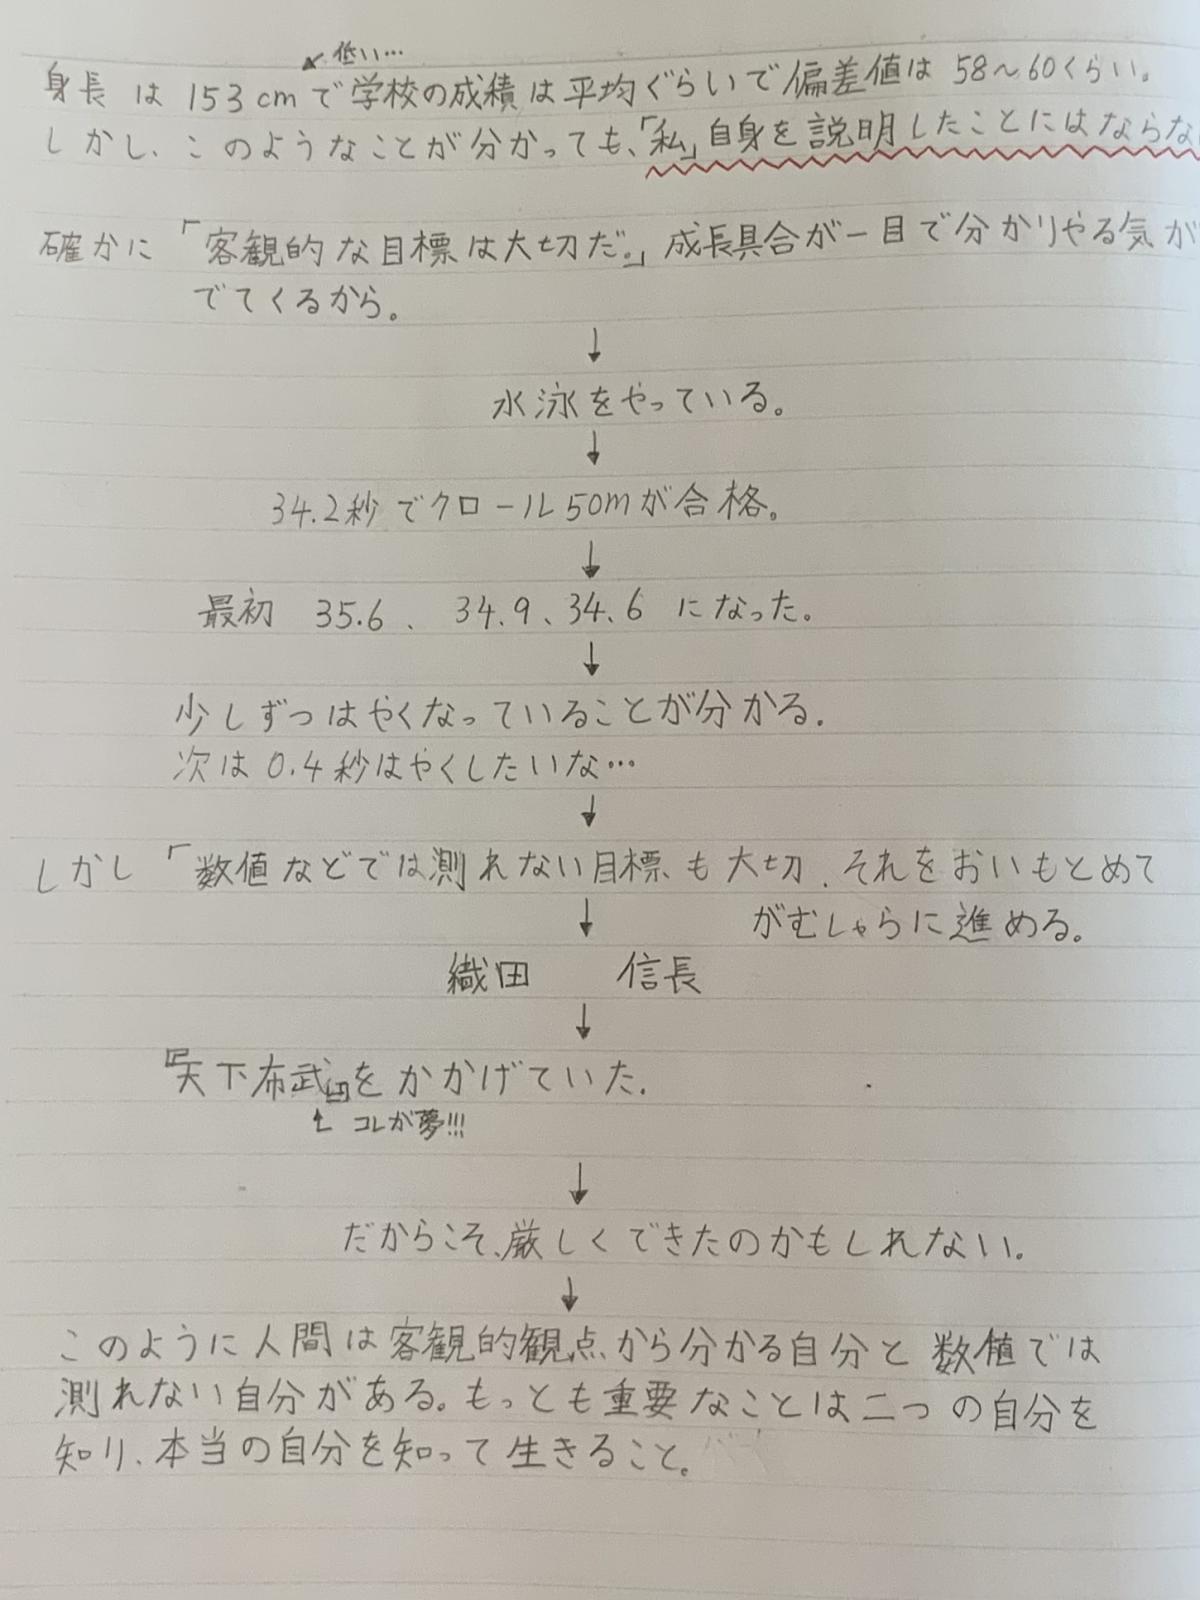 低い…
身長は153cmで学校の成績は平均ぐらいで偏差値は58～60くらい。
しかし、このようなことが分かっても、「私」自身を説明したことにはならな
確かに「客観的な目標は大切だ。」成長具合が一目で分かりやる気が
でてくるから。
↓
水泳をやっている。
↓
34.2秒でクロール50mが合格。
↓
最初 35.6、34.9、34.6 になった。
↓
少しずつはやくなっていることが分かる.
次は0.4秒はやくしたいな…
↓
しかし「数値などでは測れない目標も大切.それをおいもとめて
がむしゃらに進める。
↓
織田 信長
↓
『天下布武』をかかげていた.
コレが夢!!!
↓
だからこそ、厳しくできたのかもしれない.
↓
このように人間は客観的観点から分かる自分と数値では
測れない自分がある。もっとも重要なことは二つの自分を
知り、本当の自分を知って生きること。